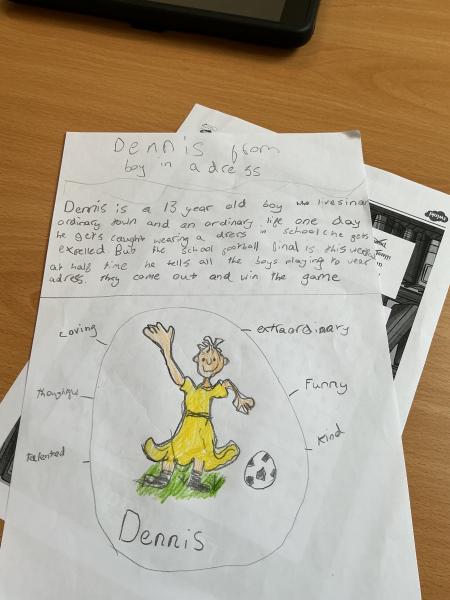 Dennis from
boy in a dress
Dennis is a 13 year old boy who lives in an
ordinary town and an ordinary life one day
he gets caught wearing a dress in school he gets
expelled. But the school football final is this
at half time he tells all the boys playing to wear
adress. they come out and win the game
Loving
extraordinary
thoughtful
Funny
talented
kind
Dennis